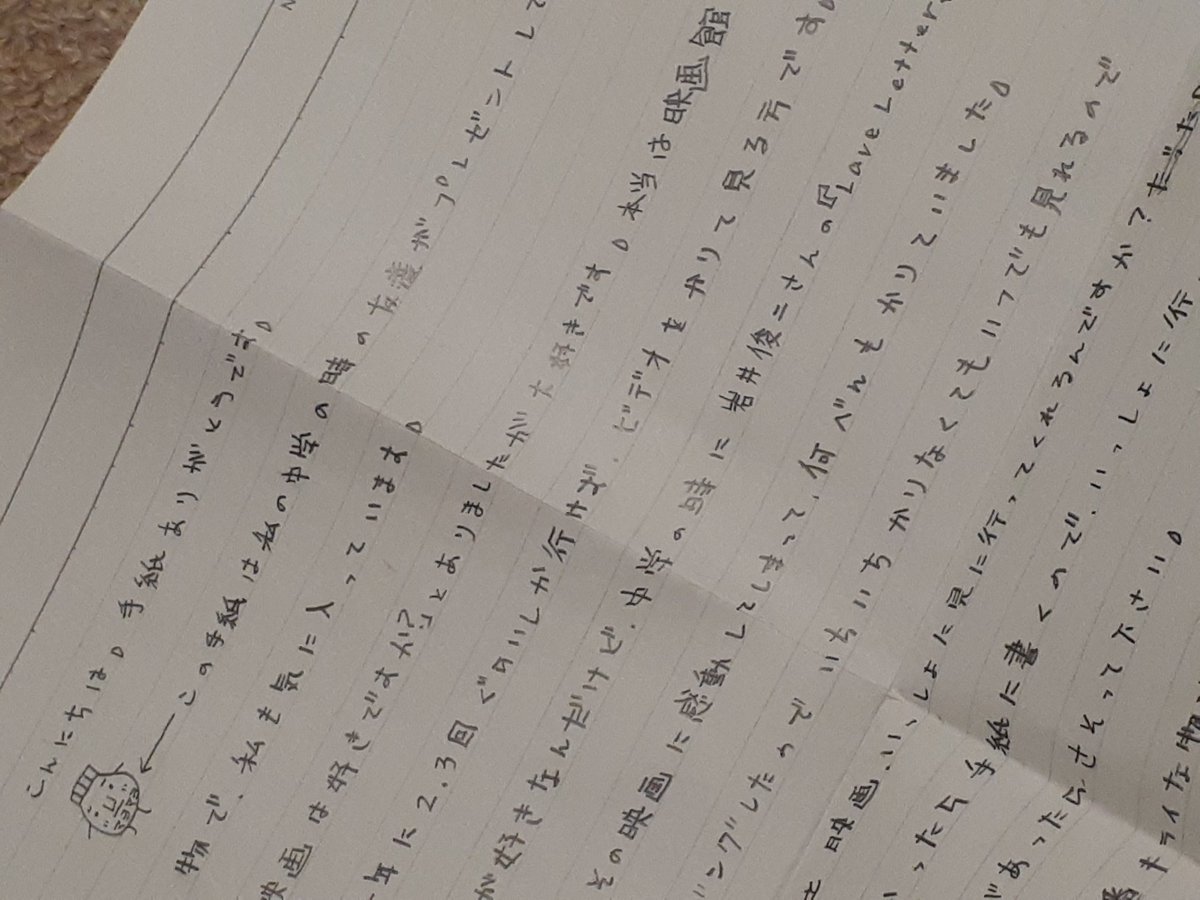 こんにちは。手紙ありがとうです。
この手紙は私の中学の時の友達がプレゼントして
物で、私も気に入っています。
映画は好きですか?』とありましたが大好きです。本当は映画館
年に2.3回ぐらいしか行けず、ビデオをかりて見る方です。
が好きなんだけど、中学の時に岩井俊二さんの『Love Letter
その映画に感動してしまって、何べんもかりていました。
ビングしたので いちいちかりなくてもいつでも見れるので
映画、いっしょに見に行ってくれるんですか?
ったら手紙に書くので、いっしょに行
があったらさそって下さい。
番キライな物